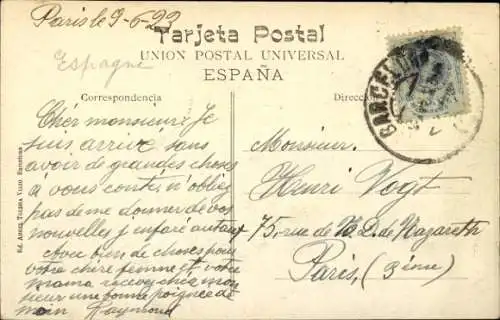 Paris le 9-6-22
Tarjeta Postal
UNION POSTAL UNIVERSAL
Espagne
ESPAÑA
Correspondencia
Direcc
BARCEL
Chér monsieur. Je
suis arrivé sans
avoir de grandes choses
a vous conté, n'obliez
pas de me donner de vos
nouvelles j'en faré autant
avec bien de choses pour
votre chere femme et votre
mama recevez chér mon
sieur une bonne poignée de
main Raymond
Monsieur.
Henri Vogt
75, rue de N. D. de Nazareth
Paris, (3ème)
Ed. Angel Toldrá Viazo Barcelona